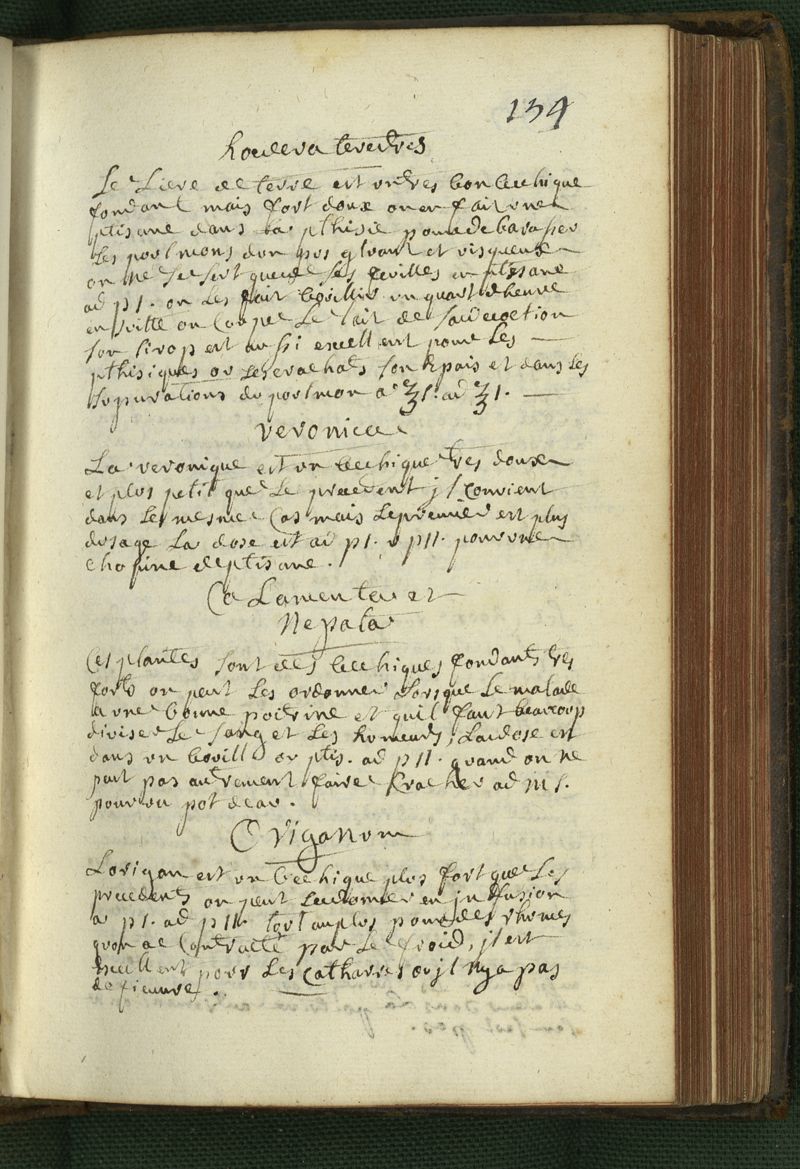 134
hedera terestres
Le Liere de terre est un tres bon bechique
fondant mais fort doux on en fait une
ptisane dans la pthisie pour debarasser
Les poolmons d'un pus gluant et visqueux
on ne se sert que de ses feuilles en ptisane
ad p 1. on les fait bouillir un quart dheure
en suitte on coupe Le lait de sa decoction
son sirop est aussi excellent pour les
pthisiques ou les crachats sont epais et dans les
supurations du poolmon a ʒ s. ad ʒ 1.
veronica
La veronique est un bechique tres doux
et plus petit que Le precedent jl convient
dans Le mesme cas mais Le premier est plus
dusage La dose est ad p1. v p11. pour une
chopine de ptisane.
Calamenta et
Nepata
Ces plantes sont des bechiques fondants tres
forts on peut Les ordonner lorsque Le malade
a une bonne poitrine et quil faut beaucoup
diviser Le sang et Les humeurs, La dose est
dans un bouill ou ptis. ad p11. quand on ne
peut pas autrement faire Kracher ad m s.
pour un pot deau.
Origanom
Lorigan est un bechique plus fort que Les
precedents on peut Le donner en jnfusion
a p1. ad p11. tout au plus pour des rhumes
quon a contracté par Le froid, jl est
excellent pour Les Catharres ou jl ny a pas
de fieuvre.